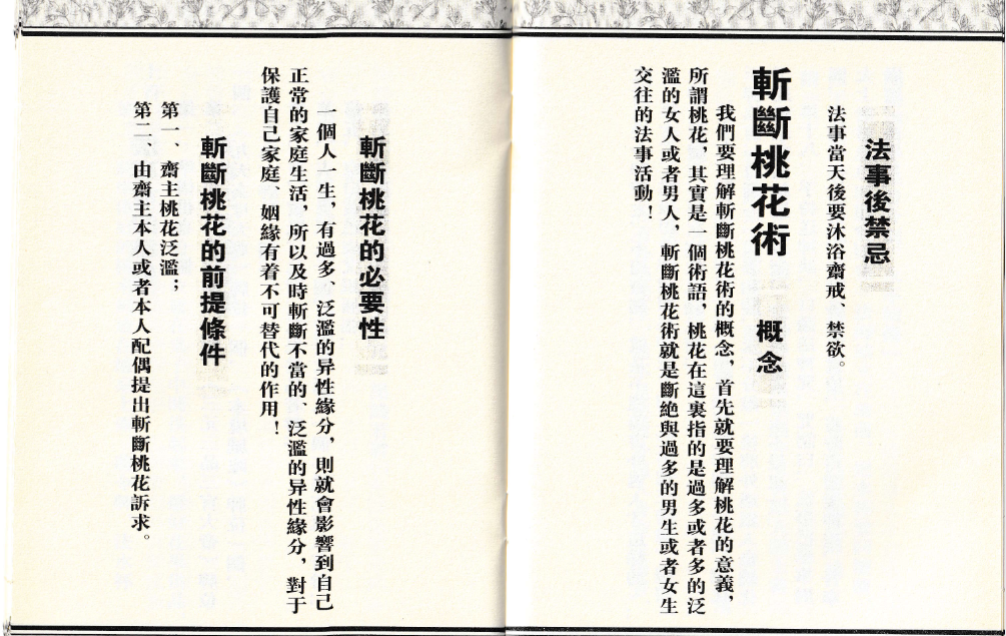 法事後禁忌
法事當天後要沐浴齋戒、禁欲。
斬斷桃花術 概念
我們要理解斬斷桃花術的概念，首先就要理解桃花的意義，
所謂桃花，其實是一個術語，桃花在這裏指的是過多或者多的泛
濫的女人或者男人，斬斷桃花術就是斷絶與過多的男生或者女生
交往的法事活動！
斬斷桃花的必要性
一個人一生，有過多、泛濫的异性緣分，則就會影響到自己
正常的家庭生活，所以及時斬斷不當的、泛濫的异性緣分，對于
保護自己家庭、姻緣有着不可替代的作用！
斬斷桃花的前提條件
第一、齋主桃花泛濫；
第二、由齋主本人或者本人配偶提出斬斷桃花訴求。